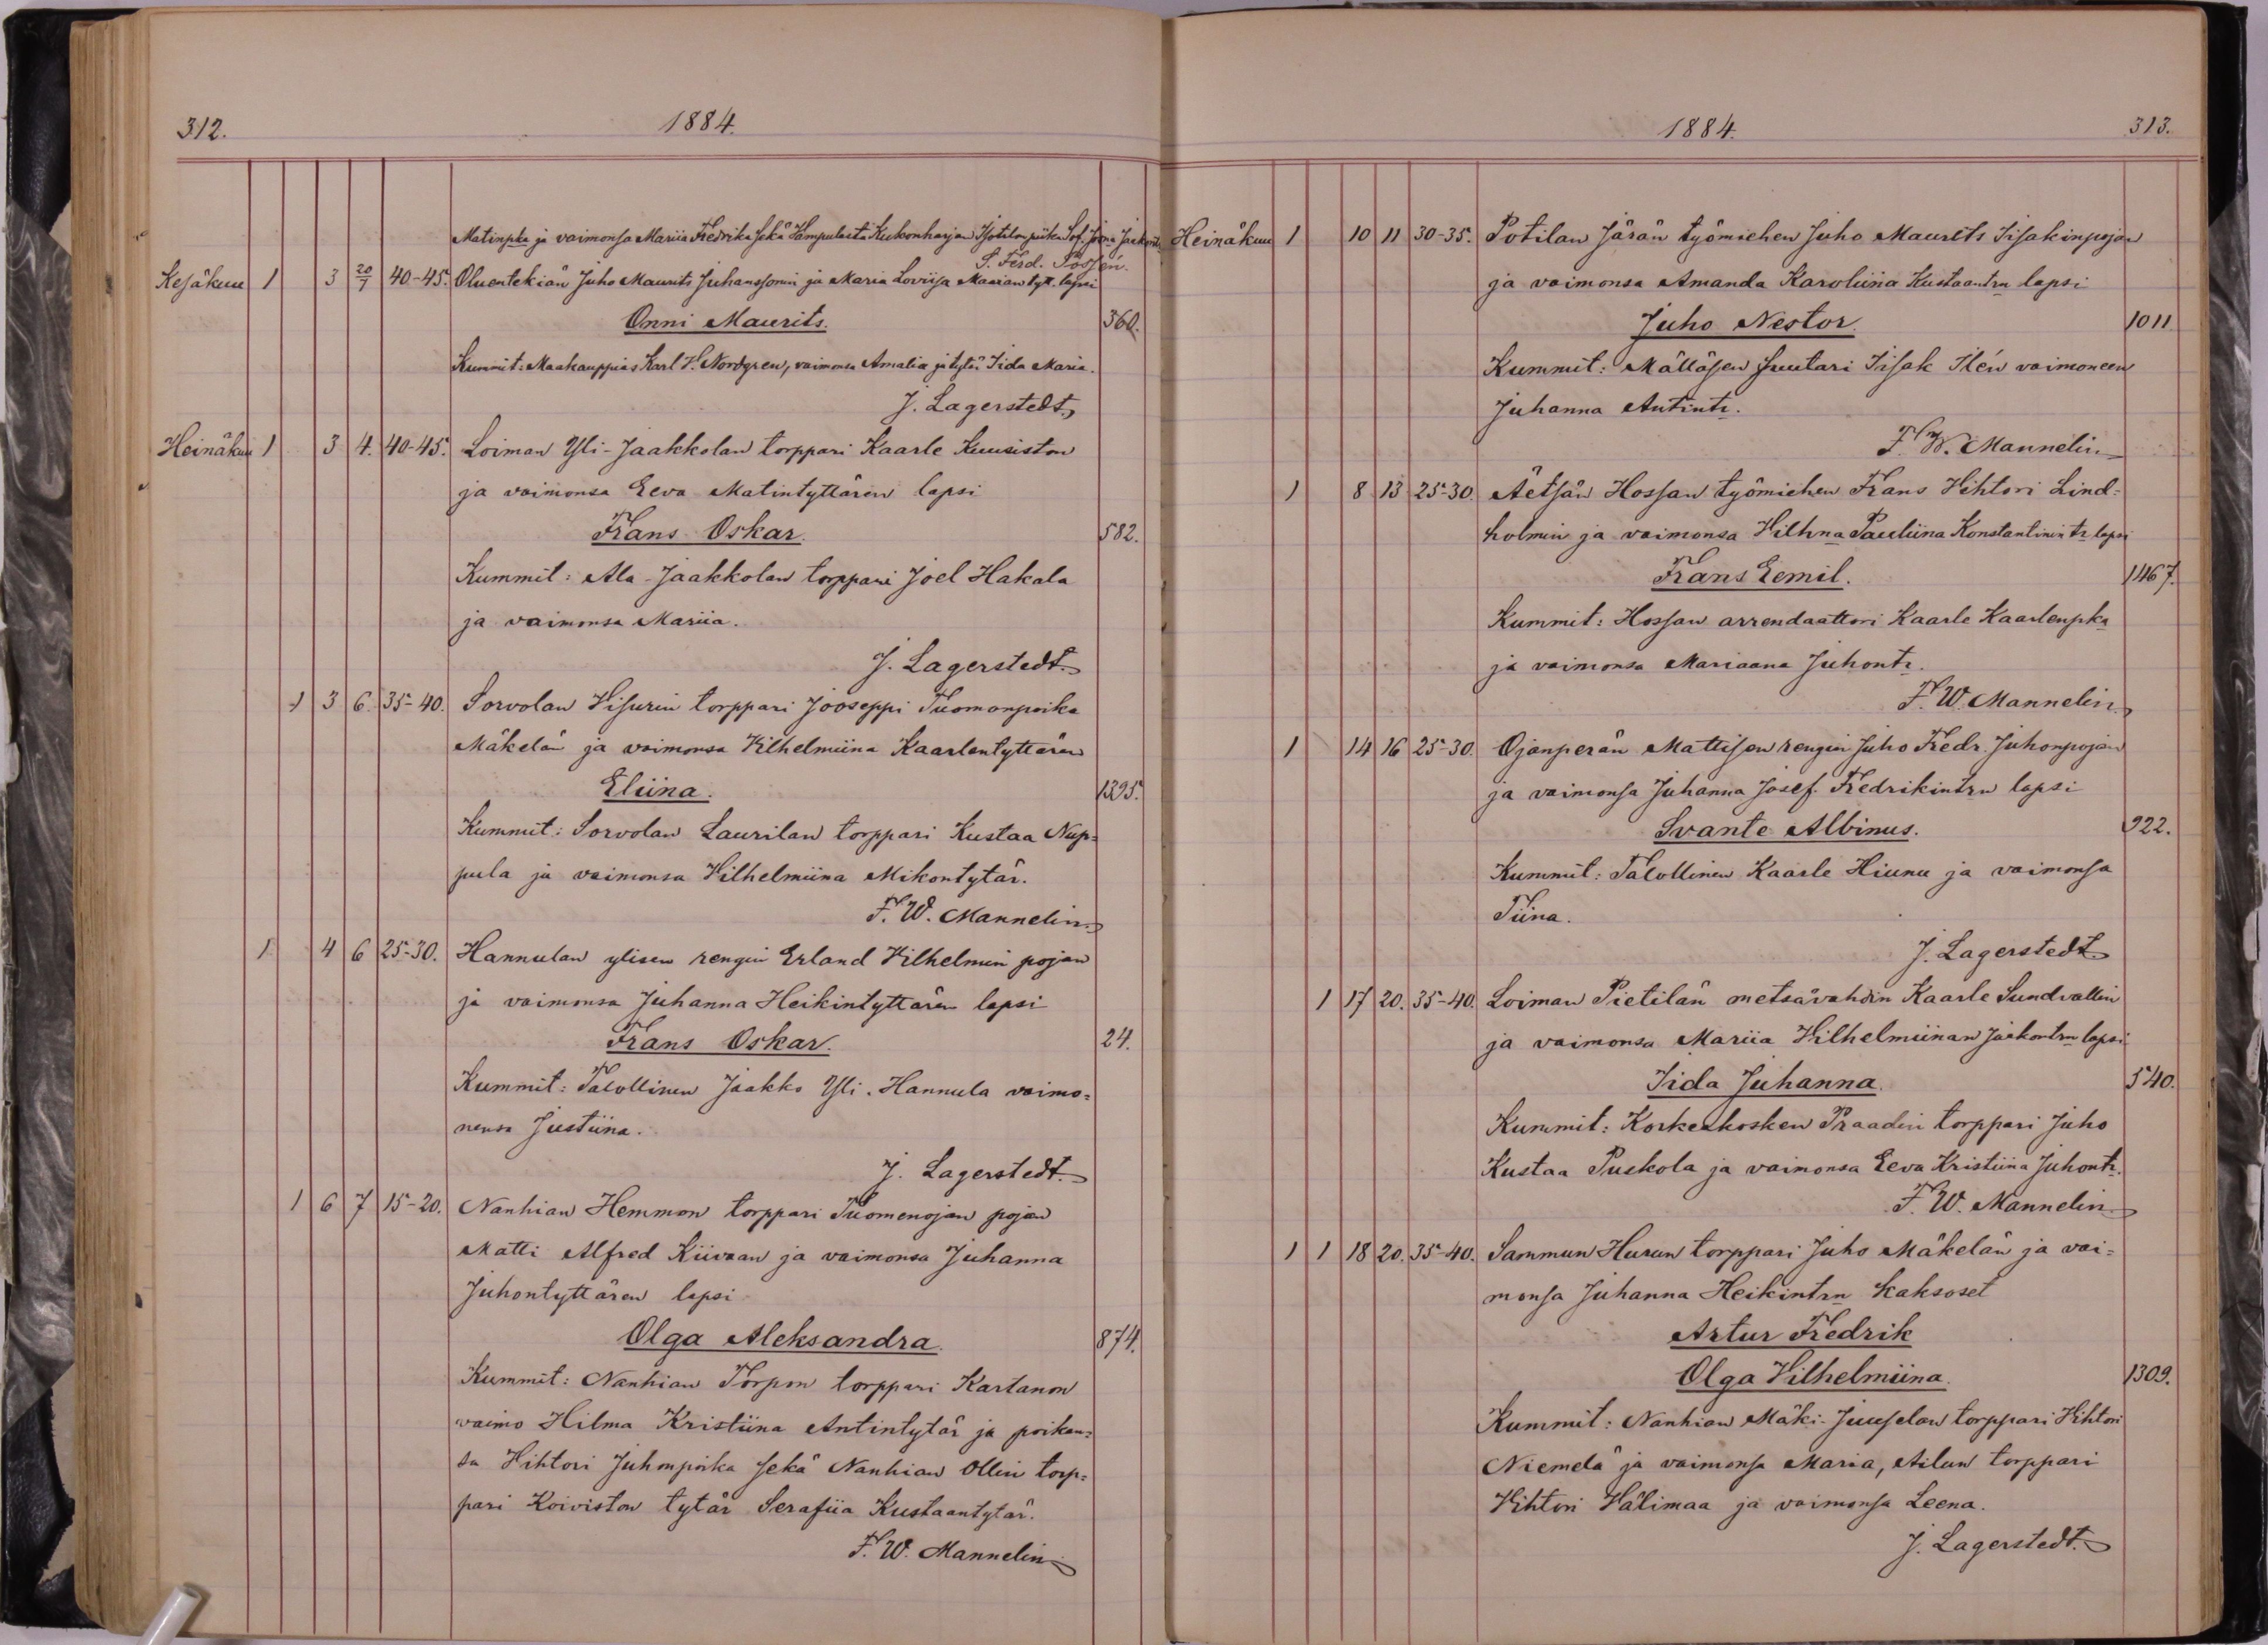 312.
1884.
Matinpka ja vaimonsa Mariia Fredrika sekä Hampulasta Kukonharjan Isotalon piika Sof. Joona Jaakont.
S. Ferd. Possén.
Kesäkuu 1 3 20/7 40-45. Oluentekiän Juho Maurits Juhanssonin ja Maria Loviisa Maariantytt. lapsi
Onni Maurits. 360.
Kummit: Maakauppias Karl H. Nordgren, vaimonsa Amalia ja tytär Iida Maria.
J. Lagerstedt.
Heinäkuu 1 3 4. 40-45. Loiman Yli-Jaakkolan torppari Kaarle Kuusiston
ja vaimonsa Eeva Matintyttären lapsi
Frans Oskar. 582.
Kummit: Ala-Jaakkolan torppari Joel Hakala
ja vaimonsa Mariia.
J. Lagerstedt.
1 3 6. 35-40. Sorvolan Hisurin torppari Jooseppi Tuomanpoika
Mäkelän ja vaimonsa Vilhelmiina Kaarlentyttären
Eliina. 1395.
Kummit: Sorvolan Laurilan torppari Kustaa Nup=
pula ja vaimonsa Vilhelmiina Mikontytär.
F. W. Mannelin
1 4 6 25-30. Hannulan ylisen rengin Erland Vilhelmin pojan
ja vaimonsa Juhanna Heikintyttären lapsi
Frans Oskar. 24.
Kummit: Talollinen Jaakko Yli-Hannula vaimo=
nensa Justiina.
J. Lagerstedt.
1 6 7 15-20. Nanhian Hemmon torppari Tuomenojan pojan
Matti Alfred Kiivaan ja vaimonsa Juhanna
Juhontyttären lapsi
Olga Aleksandra. 874.
Kummit: Nanhian Torpon torppari Kartanon
vaimo Hilma Kristiina Antintytär ja poikan=
sa Vihtori Juhonpoika sekä Nanhian Ollin torp=
pari Koiviston tytär Serafiia Kustaantytär.
F. W. Mannelin
1884.
313.
Heinäkuu 1 10 11 30-35. Potilan Järän työmiehen Juho Maurits Iisakinpojan
ja vaimonsa Amanda Karoliina Kustaantrn lapsi
Juho Nestor. 1011
Kummit: Mällösen suutari Iisak Ilén vaimoneen
Juhanna Antintr.
F. W. Mannelin
1 8 13 25-30. Äetsän Hossan työmiehen Frans Vihtori Lind=
holmin ja vaimonsa Vilhna Pauliina Konstantinin tr lapsi
Frans Eemil. 1467.
Kummit: Hossan arrendaattori Kaarle Kaarlenpka
ja vaimonsa Mariaana Juhontr.
F. W. Mannelin
1 14 16 25-30. Ojanperän Mattisen rengin Juho Fredr. Juhonpojan
ja vaimonsa Juhanna Josef. Fredrikintrn lapsi
Svante Albinus. 922.
Kummit: Talollinen Kaarle Hiunu ja vaimonsa
Tiina.
J. Lagerstedt
1 17 20. 35-40. Loiman Pietilän metsävahdin Kaarle Sundvallin
ja vaimonsa Mariia Vilhelmiinan Jaakontrn lapsi
Iida Juhanna. 540.
Kummit: Korkeakosken Praadin torppari Juho
Kustaa Puskola ja vaimonsa Eeva Kristiina Juhontr.
F. W. Mannelin
1 1 18 20. 35-40. Sammun Hurun torppari Juho Mäkelän ja vai=
monsa Juhanna Heikintrn kaksoset
Artur Fredrik
Olga Vilhelmiina. 1309.
Kummit: Nanhian Mäki-Juuselan torppari Vihtori
Niemelä ja vaimonsa Maria, Ailun torppari
Vihtori Välimaa ja vaimonsa Leena.
J. Lagerstedt.